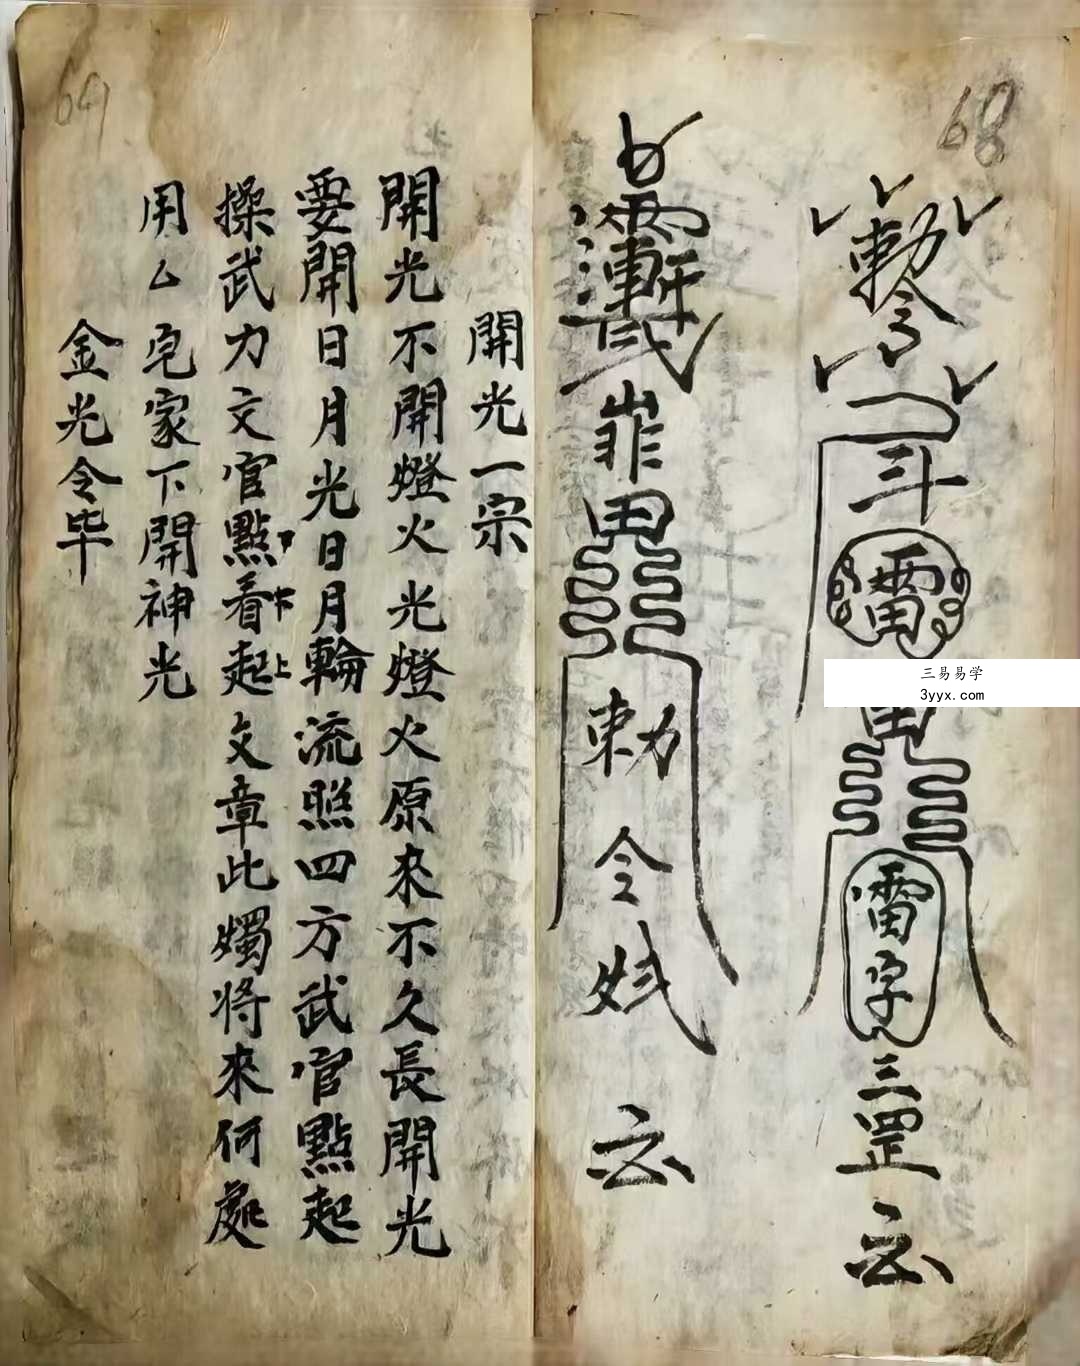 68
敕令
斗
雷
三易易学
3yyx.com
雷字
三罡
云
敕
令
云
開光一宗
開光不開燈火光燈火原來不久長開光
要開日月光日月輪流照四方武官點起
操武力文官點看起文章此燭將來何處
下
卞
上
用厶皃家下開神光
金光令毕
69